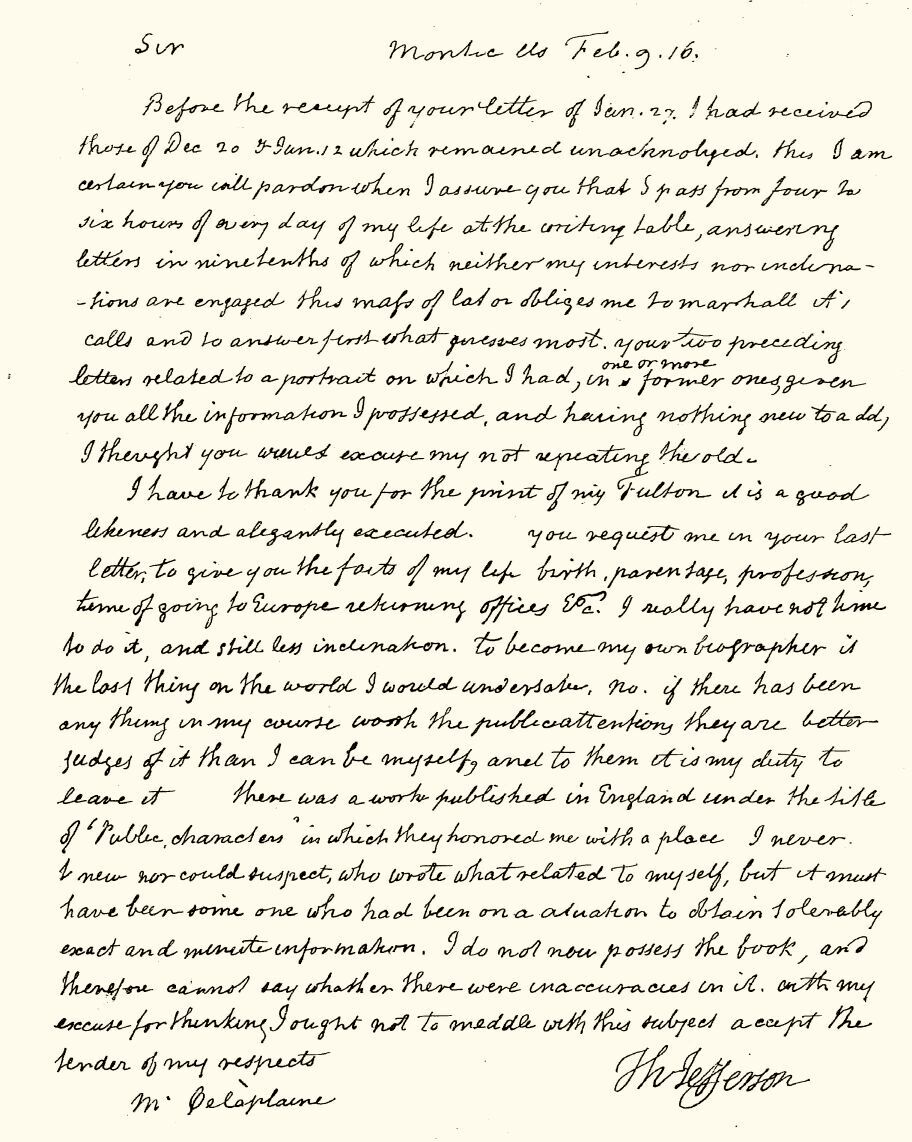 Sir Montic llo Feb. 9. 16.
Before the receipt of your letter of Jan. 27. I had received
those of Dec 20 & Jan. 12 which remained unacknolged. this I am
certain you will pardon when I assure you that I pass from four to
six hours of every day of my life at the writing table, answering
letters in nine tenths of which neither my interests nor inclina-
-tions are engaged this mass of labor obliges me to marshall it's
calls and to answer first what presses most. your two preceding
letters related to a portrait on which I had, in one or more former ones, given
you all the information I possessed, and having nothing new to add,
I thought you would excuse my not repeating the old.
I have to thank you for the print of my Fulton it is a good
likeness and elegantly executed. you request me in your last
letter, to give you the facts of my life birth, parentage, profession,
time of going to Europe returning offices &c. I really have not time
to do it, and still less inclination. to become my own biographer is
the last thing on the world I would undertake. no. if there has been
any thing in my course worth the public attention, they are better
judges of it than I can be myself, and to them it is my duty to
leave it there was a work published in England under the title
of "Public characters" in which they honored me with a place I never
knew nor could suspect, who wrote what related to myself, but it must
have been some one who had been on a situation to obtain tolerably
exact and minute information. I do not now possess the book, and
therefore cannot say whether there were inaccuracies in it. with my
excuse for thinking I ought not to meddle with this subject accept the
tender of my respects
Th Jefferson
Mr Delaplaine